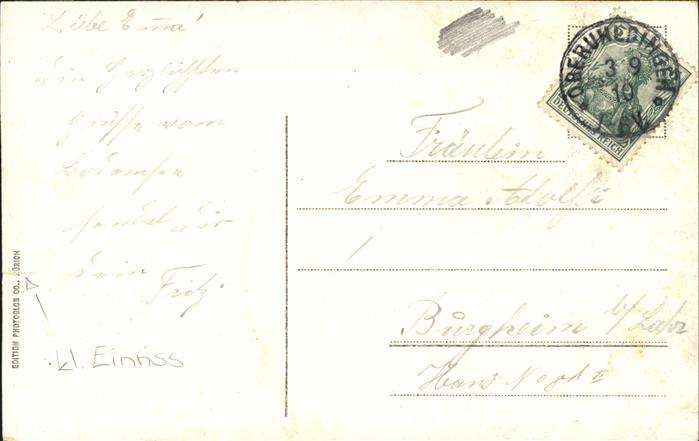 Liebe Emma!
Die herzlichsten
Grüsse vom
Bodensee
sendet dir
dein Fritz
kl. Einriss
EDITION PHOTOGLOB CO., ZÜRICH
OBERUHLDINGEN
3 9
10
DEUTSCHES REICH
Fräulein
Emma
Burgheim b/Lahr
Haus